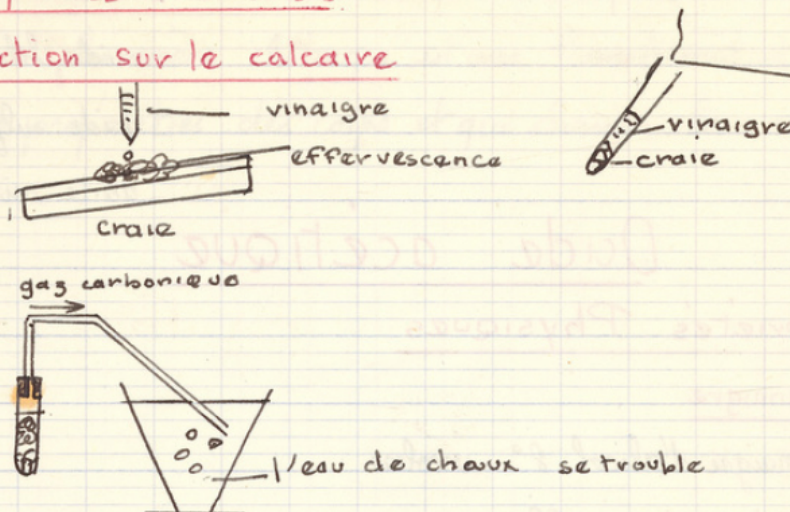 ction sur le calcaire
vinaigre
effervescence
craie
vinaigre
craie
gaz carbonique
l'eau de chaux se trouble